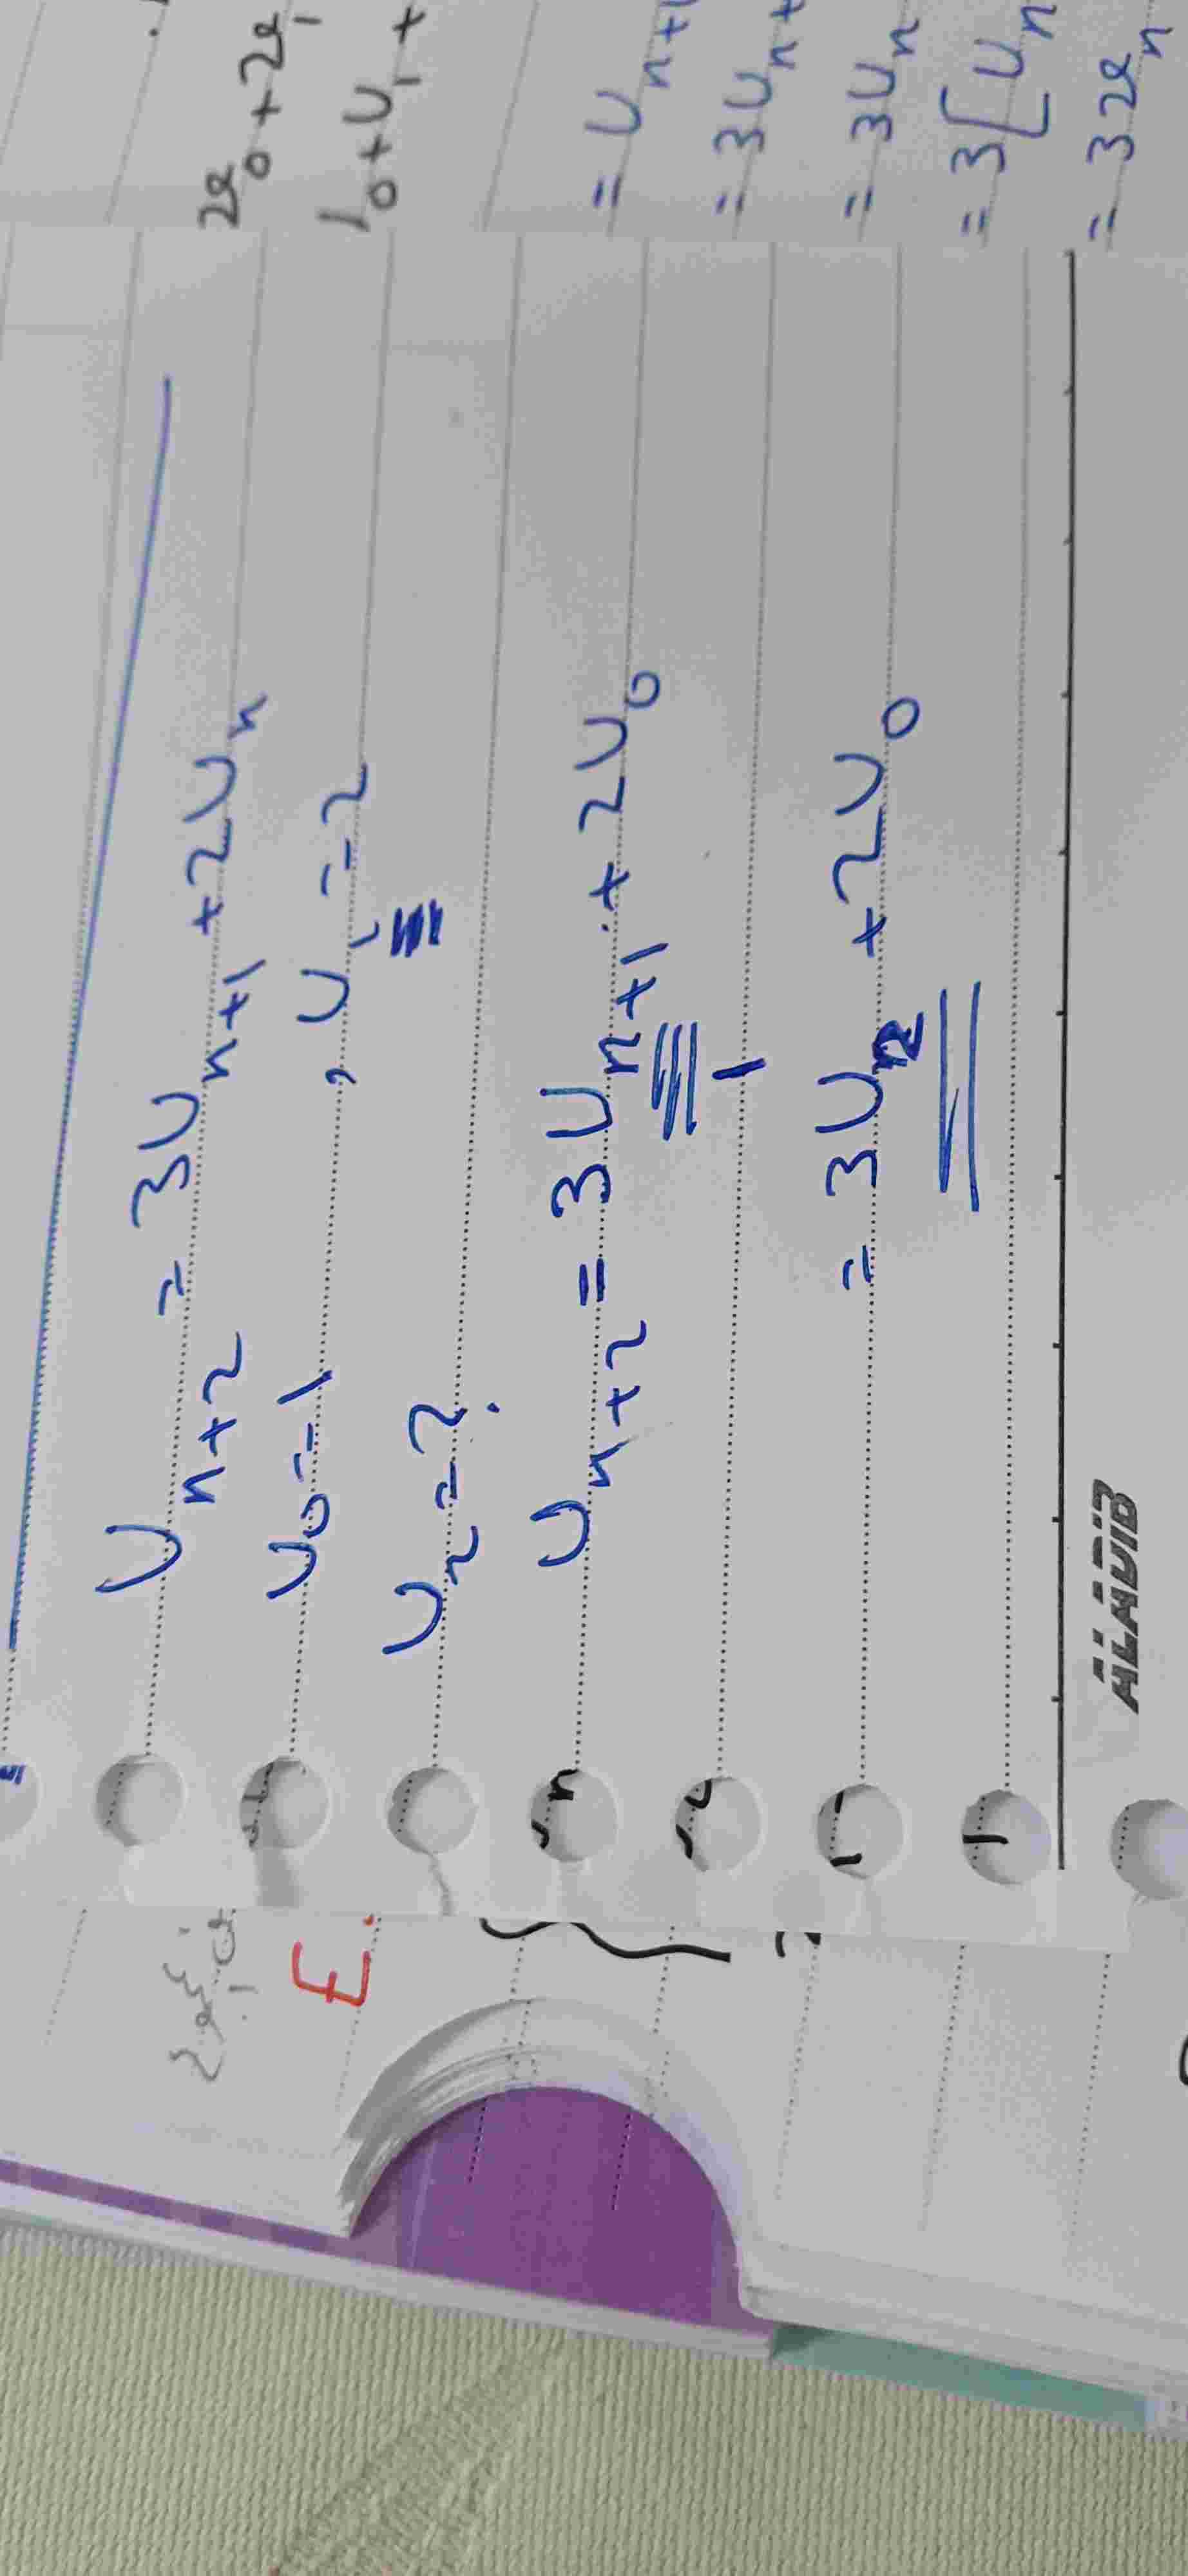 U_{n+2} = 3U_{n+1} + 2U_n
U_0 = 1 , U_1 = 2
U_2 = ?
U_{n+2} = 3U_{n+1} + 2U_0
1
= 3U_2 + 2U_0
ALADIB
v_0 + v_1
0 + U_1 +
= U_{n+1
= 3U_{n+
= 3U_n
= 3[U_n
= 3v_n
E.